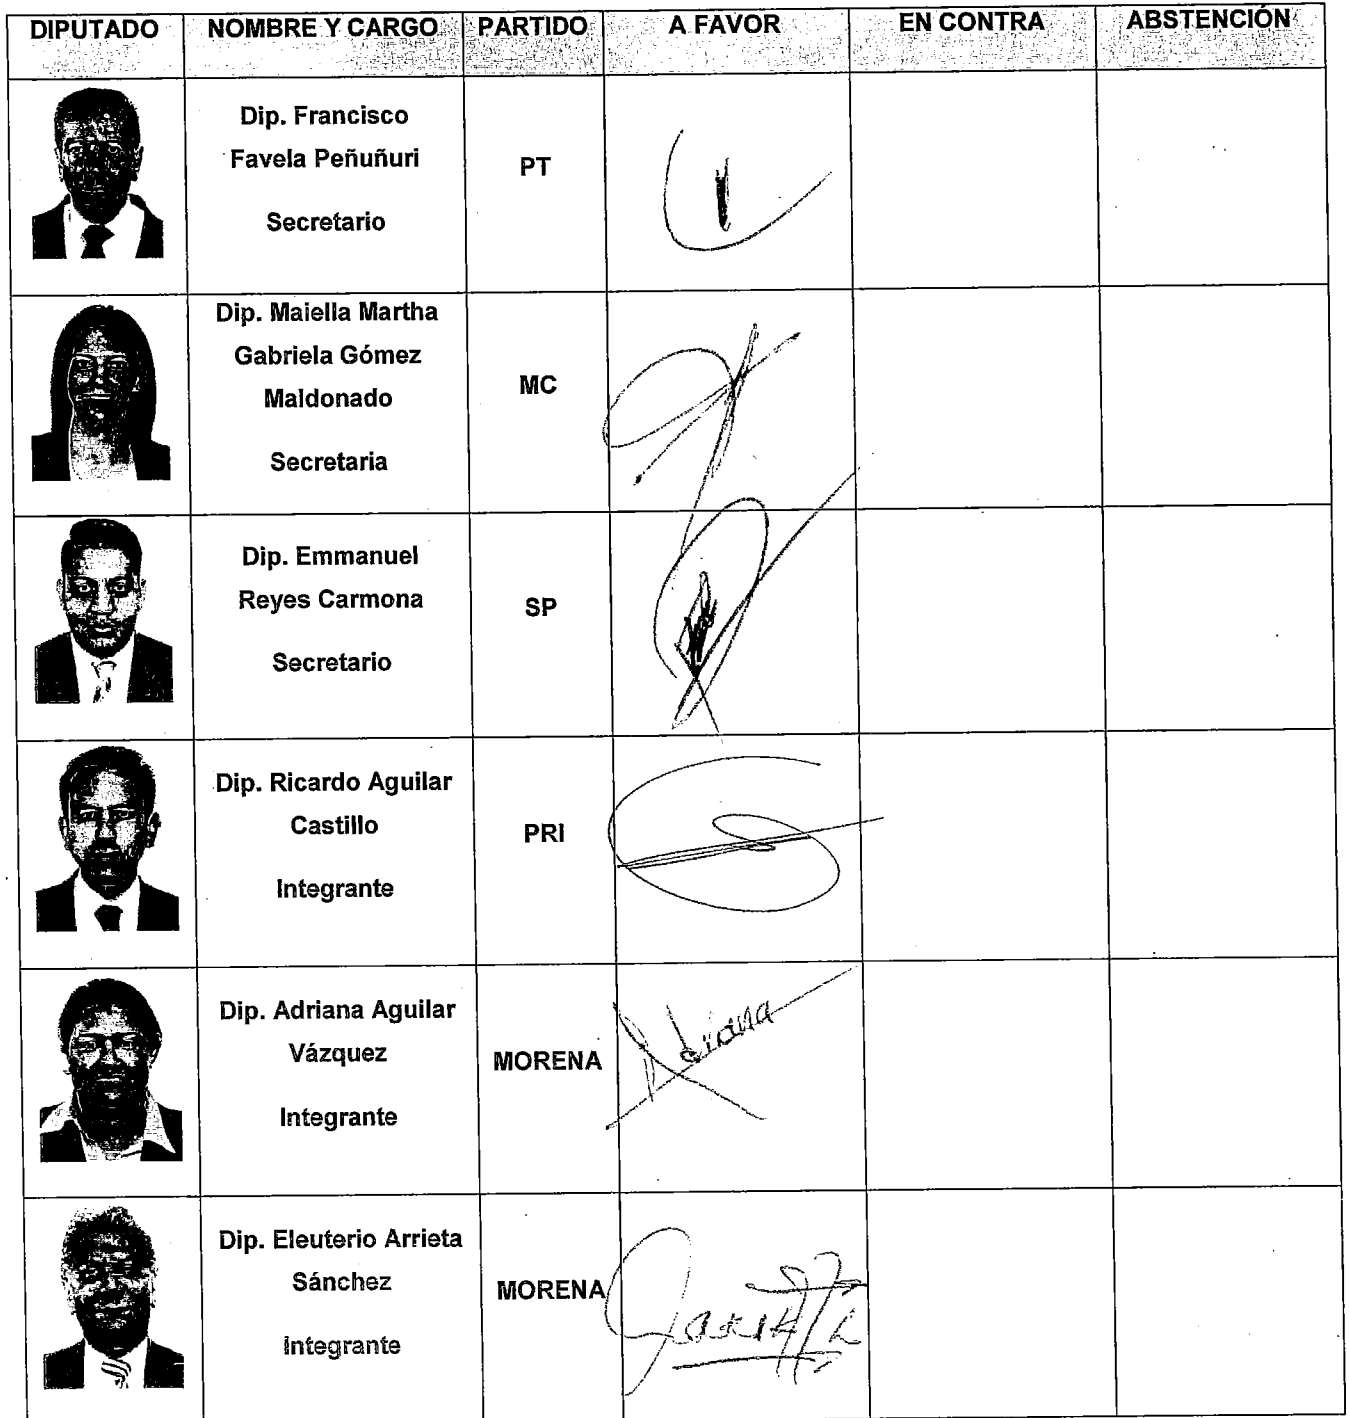 DIPUTADO NOMBRE Y CARGO PARTIDO A FAVOR EN CONTRA ABSTENCIÓN
Dip. Francisco
Favela Peñuñuri
Secretario
PT
Dip. Maiella Martha
Gabriela Gómez
Maldonado
Secretaria
MC
Dip. Emmanuel
Reyes Carmona
Secretario
SP
Dip. Ricardo Aguilar
Castillo
Integrante
PRI
Dip. Adriana Aguilar
Vázquez
Integrante
MORENA
Dip. Eleuterio Arrieta
Sánchez
Integrante
MORENA